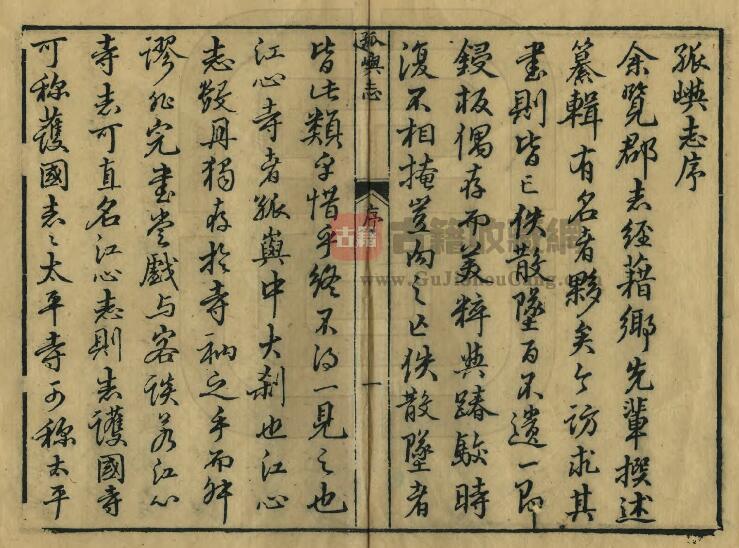 孤嶼志序
余覽郡志經籍鄉先輩撰述
纂輯有名者夥矣今訪求其
書則皆已佚散墜百不遺一即
鋟板偶存而美粹與踳駮時
復不相掩豈向之已佚散墜者
孤嶼志
序
一
皆此類乎惜乎終不得一見之也
江心寺者孤嶼中大刹也江心
志數冊獨存於寺衲之手而舛
謬非完書嘗戲與客談若江心
寺志可直名江心志則志護國寺
可稱護國志志太平寺可稱太平
古籍
古籍收藏網
www.GuJiShouCang.com